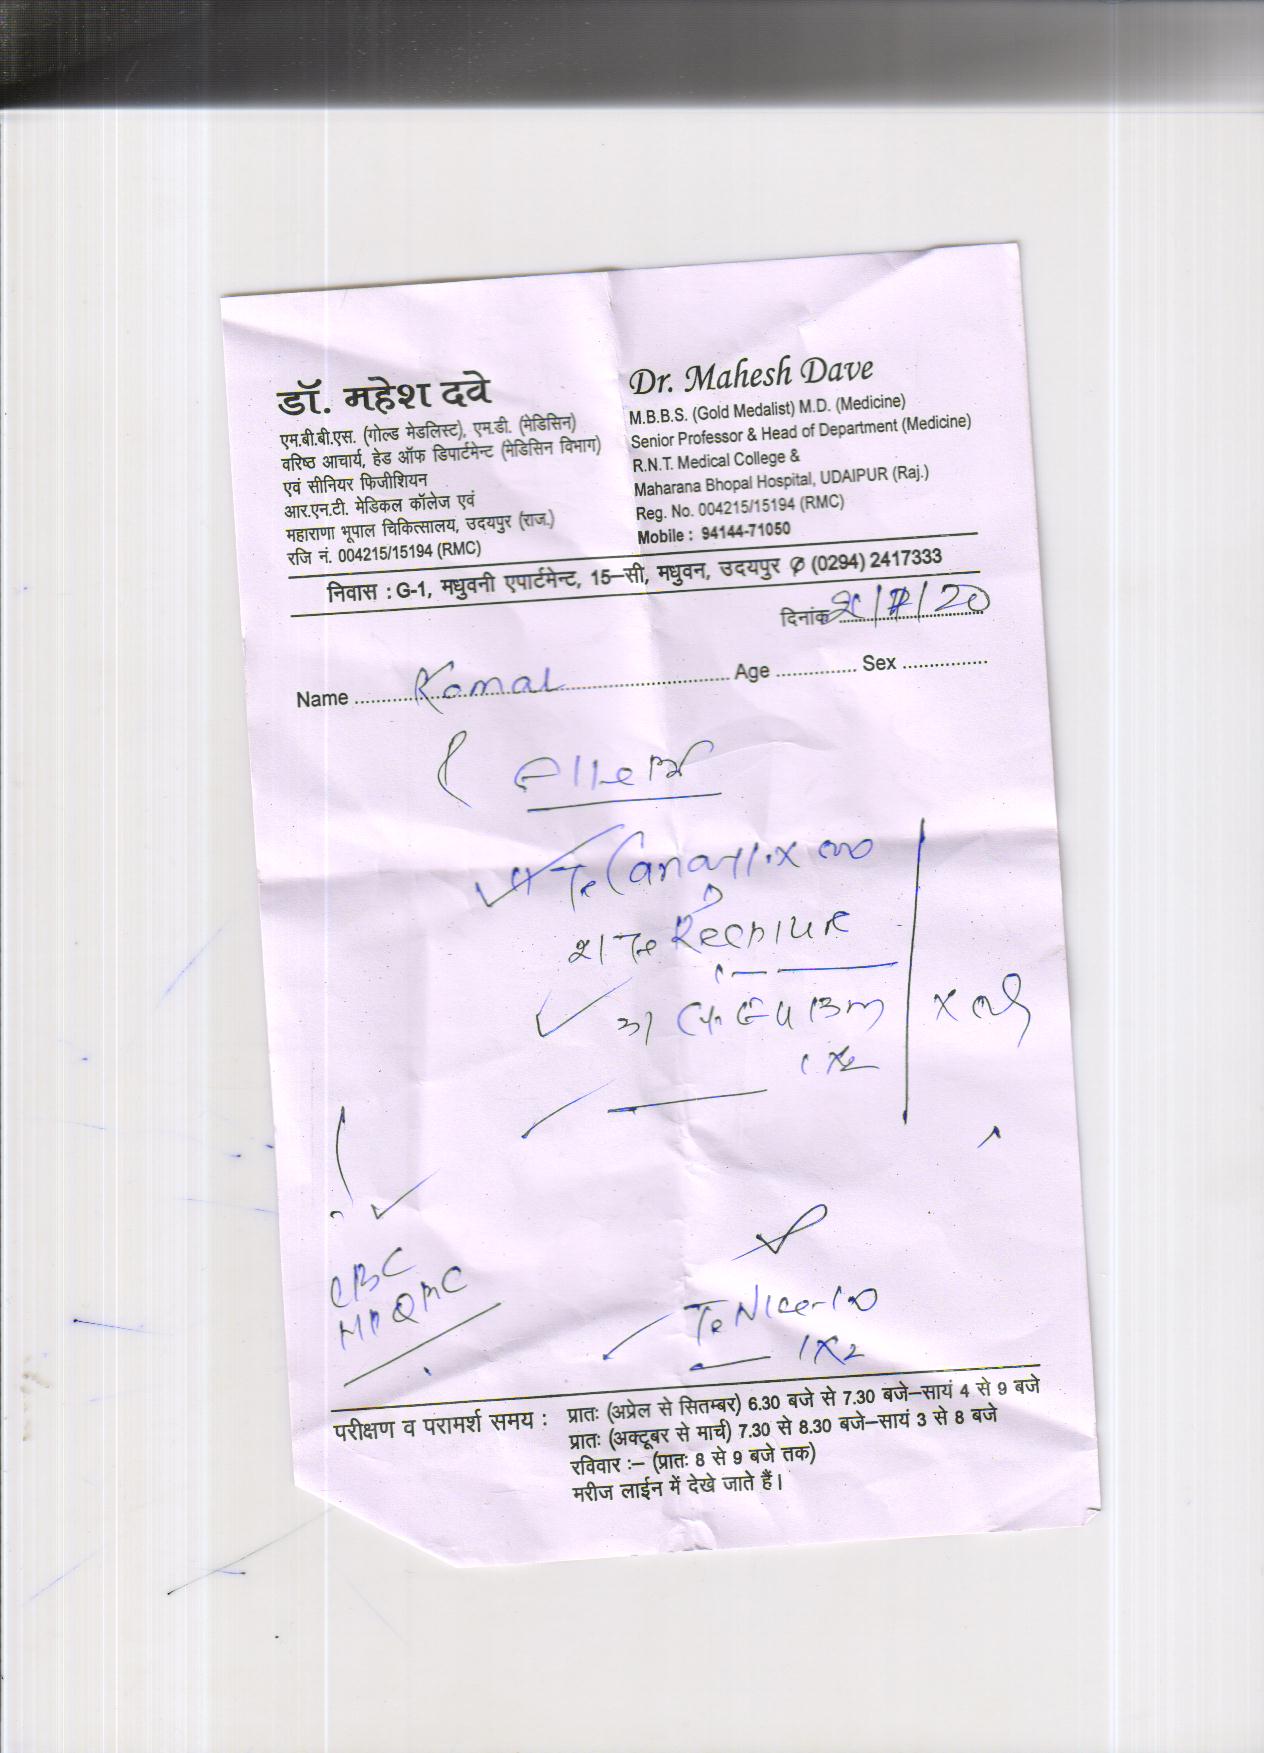 डॉ. महेश दवे
एम.बी.बी.एस. (गोल्ड मेडलिस्ट), एम.डी. (मेडिसिन)
वरिष्ठ आचार्य, हेड ऑफ डिपार्टमेन्ट (मेडिसिन विभाग)
एवं सीनियर फिजीशियन
आर.एन.टी. मेडिकल कॉलेज एवं
महाराणा भूपाल चिकित्सालय, उदयपुर (राज.)
रजि नं. 004215/15194 (RMC)
Dr. Mahesh Dave
M.B.B.S. (Gold Medalist) M.D. (Medicine)
Senior Professor & Head of Department (Medicine)
R.N.T. Medical College &
Maharana Bhopal Hospital, UDAIPUR (Raj.)
Reg. No. 004215/15194 (RMC)
Mobile : 94144-71050
निवास : G-1, मधुवनी एपार्टमेन्ट, 15–सी, मधुवन, उदयपुर ✆ (0294) 2417333
दिनांक
Name Komal Age Sex
1x2
CBC
1x2
परीक्षण व परामर्श समय : प्रातः (अप्रेल से सितम्बर) 6.30 बजे से 7.30 बजे–सायं 4 से 9 बजे
प्रातः (अक्टूबर से मार्च) 7.30 से 8.30 बजे–सायं 3 से 8 बजे
रविवार :– (प्रातः 8 से 9 बजे तक)
मरीज लाईन में देखे जाते हैं।